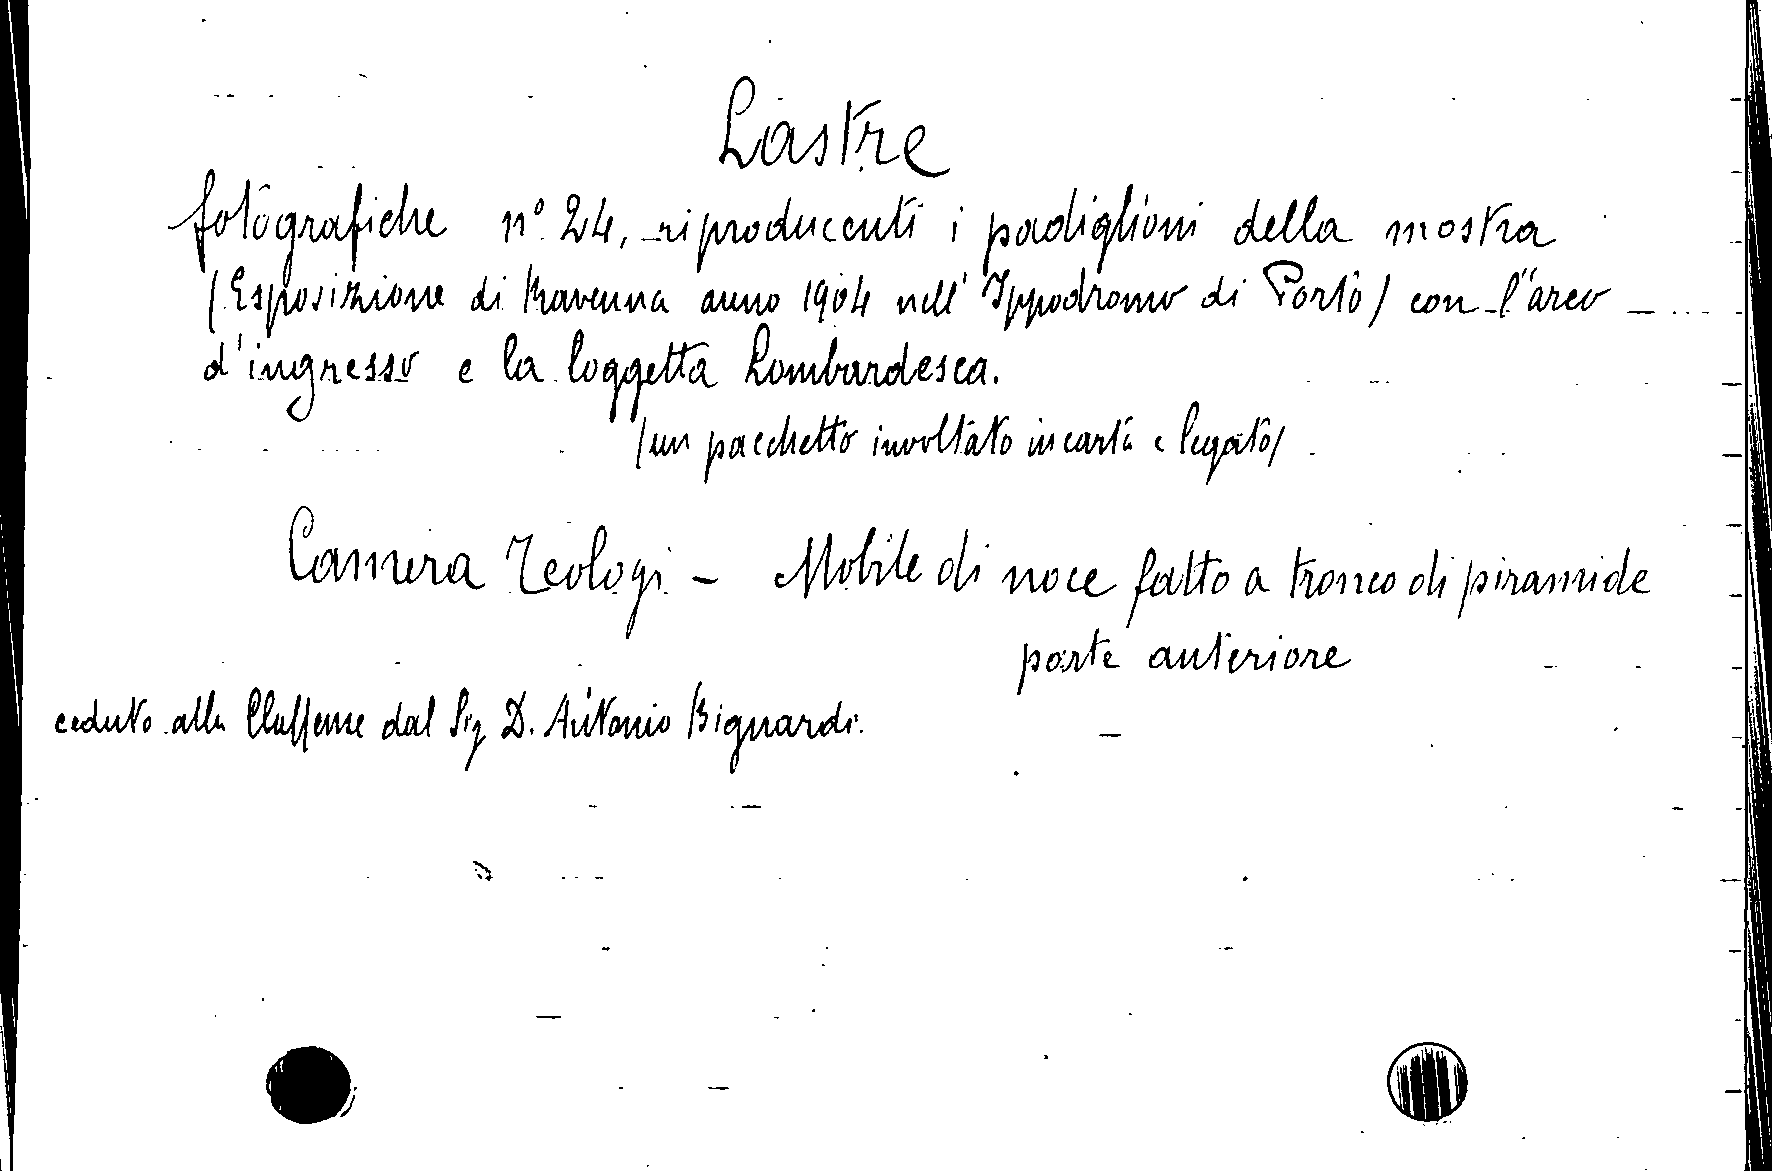 Lastre
fotografiche n° 24, riproducenti i padiglioni della mostra
(Esposizione di Ravenna anno 1904 nell'Ippodromo di Porto) con l'arco
d'ingresso e la loggetta Lombardesca.
(un pacchetto involtato in carta e legato)
Camera Teologi - Mobile di noce fatto a tronco di piramide
parte anteriore
ceduto alla Classense dal Sig D. Antonio Bignardi.